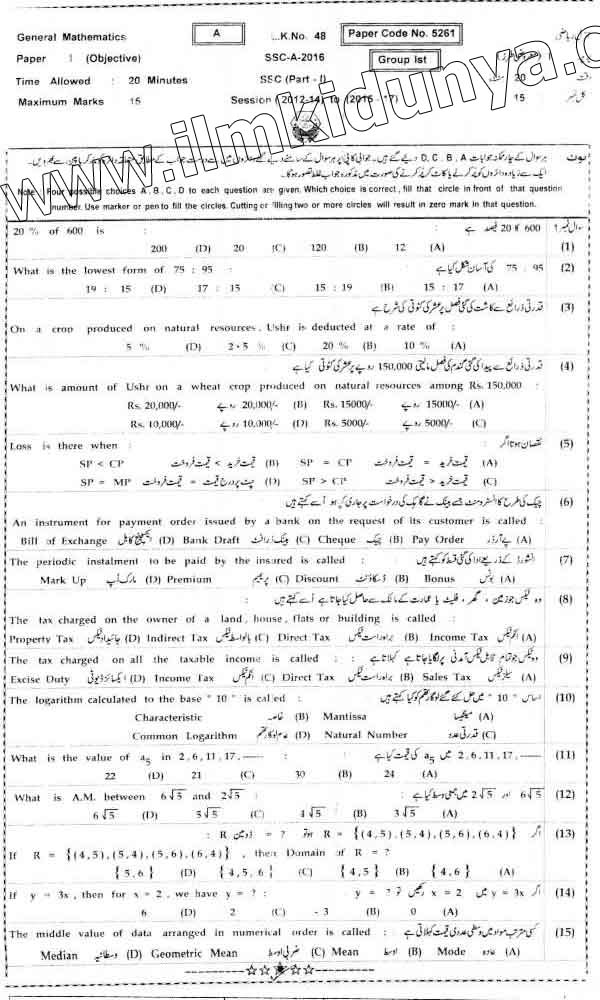 General Mathematics A .K.No. 48 Paper Code No. 5261
Paper 1 (Objective) SSC-A-2016 Group Ist
Time Allowed : 20 Minutes SSC (Part - I) 20
Maximum Marks : 15 Session (2012-14) to (2016 - 17) 15
www.ilmkidunya.com
Note: Four possible choices A, B, C, D to each question are given. Which choice is correct, fill that circle in front of that question
number. Use marker or pen to fill the circles. Cutting or filling two or more circles will result in zero mark in that question.
20 % of 600 is : 600 کا 20 فیصد ہے : سوال نمبر 1
200 (D) 20 (C) 120 (B) 12 (A) (1)
What is the lowest form of 75 : 95 : 75 : 95 کی آسان شکل کیا ہے (2)
19 : 15 (D) 17 : 15 (C) 15 : 19 (B) 15 : 17 (A)
قدرتی ذرائع سے کاشت کی گئی فصل پر عشر کی کٹوتی کی شرح ہے (3)
On a crop produced on natural resources, Ushr is deducted at a rate of :
5 % (D) 2·5 % (C) 20 % (B) 10 % (A)
قدرتی ذرائع سے پیدا کی گئی گندم کی فصل مالیتی 150,000 روپے پر عشر کی کٹوتی کیا ہے (4)
What is amount of Ushr on a wheat crop produced on natural resources among Rs. 150,000 :
Rs. 20,000/- 20,000/- روپے (B) Rs. 15000/- 15000/- روپے (A)
Rs. 10,000/- 10,000/- روپے (D) Rs. 5000/- 5000/- روپے (C)
Loss is there when : نقصان ہوتا اگر : (5)
SP < CP قیمت خرید > قیمت فروخت (B) SP = CP قیمت خرید = قیمت فروخت (A)
SP = MP چھپی درج قیمت = قیمت فروخت (D) SP > CP قیمت خرید < قیمت فروخت (C)
چیک کی طرح کا انسٹرومنٹ جسے بینک نے گاہک کی درخواست پر جاری کیا ہو اسے کہتے ہیں (6)
An instrument for payment order issued by a bank on the request of its customer is called :
Bill of Exchange ایکسچینج کا بل (D) Bank Draft بینک ڈرافٹ (C) Cheque چیک (B) Pay Order پے آرڈر (A)
The periodic instalment to be paid by the insured is called : انشورڈ کے ذریعے ادا کی گئی قسط کو کہتے ہیں (7)
Mark Up مارک اَپ (D) Premium پریمیم (C) Discount ڈسکاؤنٹ (B) Bonus بونس (A)
وہ ٹیکس جو زمین ، گھر ، فلیٹ یا عمارت کے مالک سے حاصل کیا جاتا ہے اسے کہتے ہیں : (8)
The tax charged on the owner of a land, house, flats or building is called :
Property Tax جائیداد ٹیکس (D) Indirect Tax بالواسطہ ٹیکس (C) Direct Tax براہ راست ٹیکس (B) Income Tax انکم ٹیکس (A)
The tax charged on all the taxable income is called : وہ ٹیکس جو تمام قابل ٹیکس آمدنی پر لگایا جاتا ہے کہلاتا ہے : (9)
Excise Duty ایکسائز ڈیوٹی (D) Income Tax انکم ٹیکس (C) Direct Tax براہ راست ٹیکس (B) Sales Tax سیلز ٹیکس (A)
The logarithm calculated to the base " 10 " is called : اساس " 10 " میں حل کئے گئے لوگارتھم کو کیا کہتے ہیں (10)
Characteristic خاصہ (B) Mantissa مینٹیسا (A)
Common Logarithm عام لوگارتھم (D) Natural Number قدرتی عدد (C)
What is the value of a₅ in 2, 6, 11, 17, ------ : 2, 6, 11, 17, ------ میں a₅ کی قیمت کیا ہے (11)
22 (D) 21 (C) 30 (B) 24 (A)
What is A.M. between 6√5 and 2√5 : 6√5 اور 2√5 میں حسابی وسط کیا ہے : (12)
6√5 (D) 5√5 (C) 4√5 (B) 3√5 (A)
اگر R = {(4,5),(5,4),(5,6),(6,4)} ہو تو R ڈومین = ? : (13)
If R = {(4,5),(5,4),(5,6),(6,4)}, then Domain of R = ?
{5,6} (D) {4,5,6} (C) {4,5} (B) {4,6} (A)
If y = 3x, then for x = 2, we have y = ? : اگر y = 3x میں x = 2 رکھیں تو y = ? : (14)
6 (D) 2 (C) - 3 (B) 0 (A)
The middle value of data arranged in numerical order is called : کسی مرتب مواد میں وسطی عددی قیمت کہلاتی ہے (15)
Median وسطانیہ (D) Geometric Mean ضربی اوسط (C) Mean اوسط (B) Mode عادہ (A)